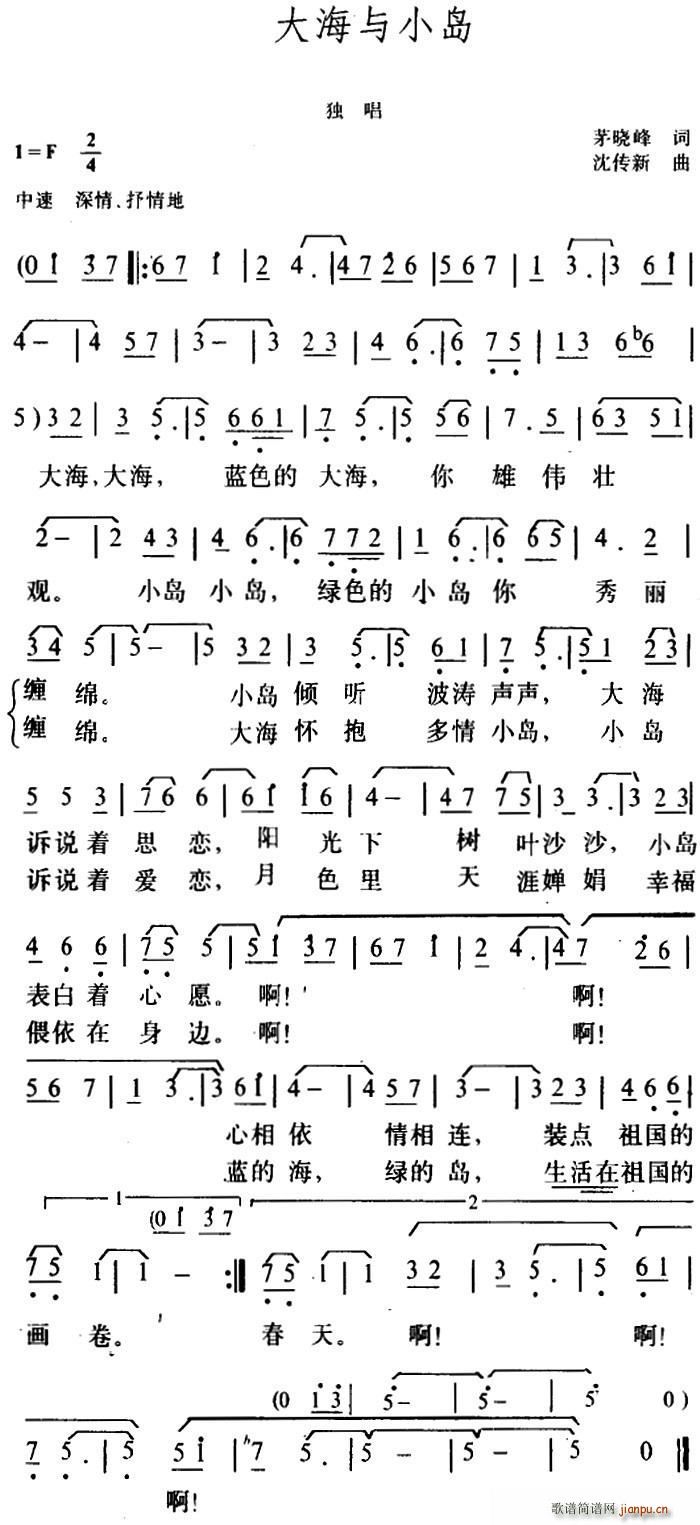 大海与小岛
独 唱
1=F 2/4
茅晓峰 词
沈传新 曲
中速 深情、抒情地
(0 1 3 7 ‖: 6 7 1 | 2 4. | 4 7 2 6 | 5 6 7 | 1 3. | 3 6 1 |
4 - | 4 5 7 | 3 - | 3 2 3 | 4 6. | 6 7 5 | 1 3 6 b6 |
5 ) 3 2 | 3 5. | 5 6 6 1 | 7 5. | 5 5 6 | 7. 5 | 6 3 5 1 |
大海,大海, 蓝色的 大海, 你 雄 伟 壮
2 - | 2 4 3 | 4 6. | 6 7 7 2 | 1 6. | 6 6 5 | 4. 2 |
观。 小岛 小岛, 绿色的 小岛你 秀丽
3 4 5 | 5 - | 5 3 2 | 3 5. | 5 6 1 | 7 5. | 5 1 2 3 |
缠 绵。 小岛 倾 听 波涛 声声, 大 海
缠 绵。 大海 怀 抱 多情 小岛, 小 岛
5 5 3 | 7 6 6 | 6 1 1 6 | 4 - | 4 7 7 5 | 3 3. | 3 2 3 |
诉说着 思 恋, 阳 光下 树 叶沙 沙, 小岛
诉说着 爱 恋, 月 色里 天 涯婵 娟 幸福
4 6 6 | 7 5 5 | 5 1 3 7 | 6 7 1 | 2 4. | 4 7 2 6 |
表白着 心 愿。 啊! 啊!
偎依在 身 边。 啊! 啊!
5 6 7 | 1 3. | 3 6 1 | 4 - | 4 5 7 | 3 - | 3 2 3 | 4 6 6 |
心相 依 情相 连, 装点 祖国的
蓝的 海, 绿的 岛, 生活在祖国的
1 2
(0 1 3 7
7 5 1 | 1 - :‖ 7 5 1 | 1 3 2 | 3 5. | 5 6 1 |
画 卷。 春 天。 啊! 啊!
(0 1 3 | 5 - | 5 - | 5 0 )
7 5. | 5 5 1 | 7 5. | 5 - | 5 - | 5 0 ‖
啊!
歌谱简谱网 jianpu.cn